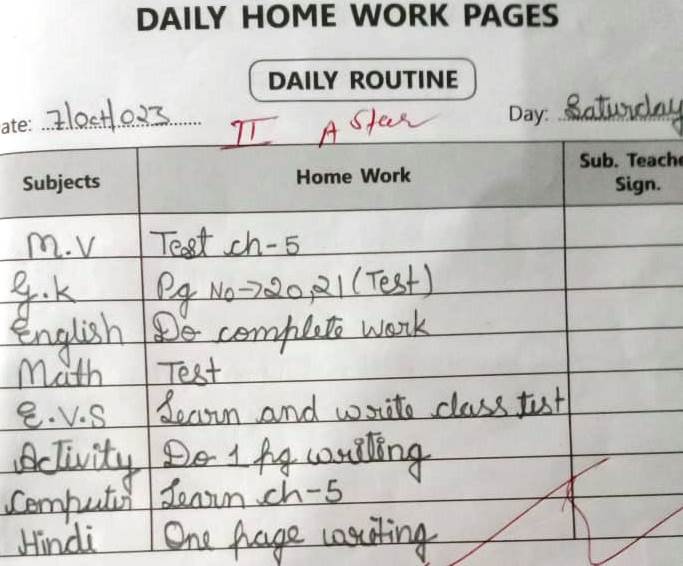 DAILY HOME WORK PAGES
DAILY ROUTINE
ate: 7/Oct/023 Day: Saturday
II A Star
Subjects Home Work Sub. Teache Sign.
M.V Test ch-5
G.k Pg No→20,21 (Test)
English Do complete work
Math Test
E.V.S Learn and write class test
Activity Do 1 pg writing
Computer Learn ch-5
Hindi One page writing